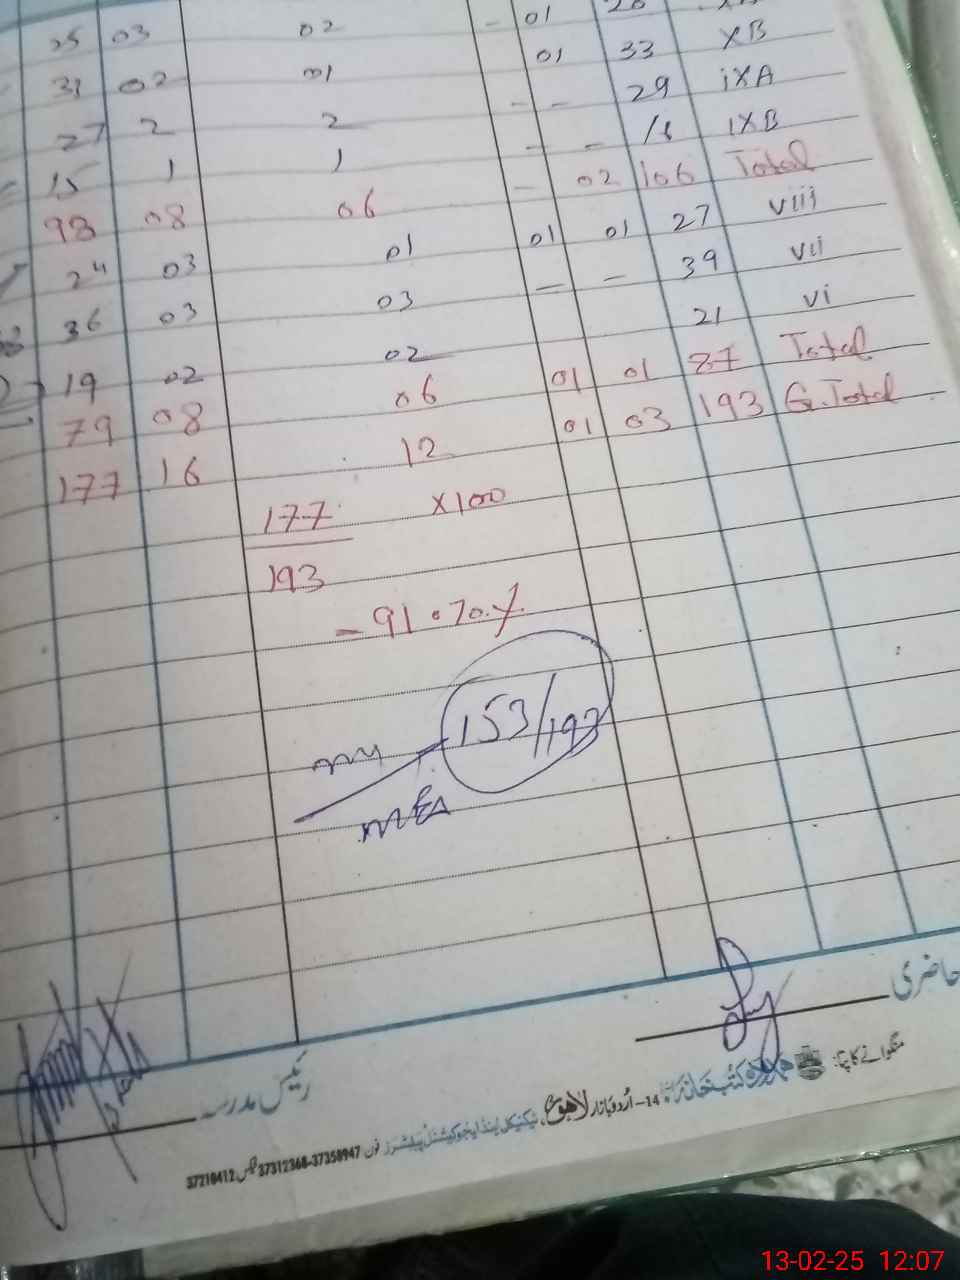 25 03 02 - 01 28
31 02 01 01 33 XB
27 2 2 - - 29 iXA
15 1 1 - - 16 IXB
98 08 06 - 02 106 Total
24 03 01 01 01 27 viii
36 03 03 - - 39 vii
19 02 02 21 vi
79 08 06 01 01 87 Total
177 16 12 01 03 193 G.Total
177 X100
193
- 91.70%
153/193
MEA
حاضری
رئیس مدرسہ
منگوانے کا پتہ: ہمدرد کتب خانہ 14-اُردو بازار لاہور ٹیکنیکل اینڈ ایجوکیشنل پبلشرز فون 37312368-37358947 فیکس 37218412
13-02-25 12:07